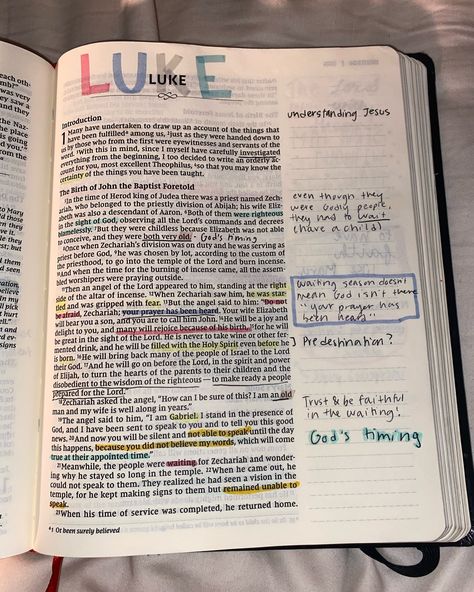 each oth-
LUKE
LUKE
Introduction
1 Many have undertaken to draw up an account of the things that
have been fulfilled a among us, 2 just as they were handed down to
us by those who from the first were eyewitnesses and servants of the
word. 3 With this in mind, since I myself have carefully investigated
everything from the beginning, I too decided to write an orderly ac-
count for you, most excellent Theophilus, 4 so that you may know the
certainty of the things you have been taught.
The Birth of John the Baptist Foretold
5 In the time of Herod king of Judea there was a priest named Zech-
ariah, who belonged to the priestly division of Abijah; his wife Eliz-
abeth was also a descendant of Aaron. 6 Both of them were righteous
in the sight of God, observing all the Lord's commands and decrees
blamelessly. 7 But they were childless because Elizabeth was not able
to conceive, and they were both very old. * God's timing
8 Once when Zechariah's division was on duty and he was serving as
priest before God, 9 he was chosen by lot, according to the custom of
the priesthood, to go into the temple of the Lord and burn incense.
10 And when the time for the burning of incense came, all the assem-
bled worshipers were praying outside.
11 Then an angel of the Lord appeared to him, standing at the right
side of the altar of incense. 12 When Zechariah saw him, he was star-
tled and was gripped with fear. 13 But the angel said to him: "Do not
be afraid, Zechariah; your prayer has been heard. Your wife Elizabeth
will bear you a son, and you are to call him John. 14 He will be a joy and
delight to you, and many will rejoice because of his birth, 15 for he will
be great in the sight of the Lord. He is never to take wine or other fer-
mented drink, and he will be filled with the Holy Spirit even before he
is born. 16 He will bring back many of the people of Israel to the Lord
their God. 17 And he will go on before the Lord, in the spirit and power
of Elijah, to turn the hearts of the parents to their children and the
disobedient to the wisdom of the righteous — to make ready a people
prepared for the Lord."
18 Zechariah asked the angel, "How can I be sure of this? I am an old
man and my wife is well along in years."
19 The angel said to him, "I am Gabriel. I stand in the presence of
God, and I have been sent to speak to you and to tell you this good
news. 20 And now you will be silent and not able to speak until the day
this happens, because you did not believe my words, which will come
true at their appointed time."
21 Meanwhile, the people were waiting for Zechariah and wonder-
ing why he stayed so long in the temple. 22 When he came out, he
could not speak to them. They realized he had seen a vision in the
temple, for he kept making signs to them but remained unable to
speak.
23 When his time of service was completed, he returned home.
a 1 Or been surely believed
understanding Jesus
even though they
were Godly people,
they had to wait
(have a child)
waiting season doesn't
mean God isn't there
"your prayer has
been heard"
Predestination?
Trust & be faithful
in the waiting!
God's timing